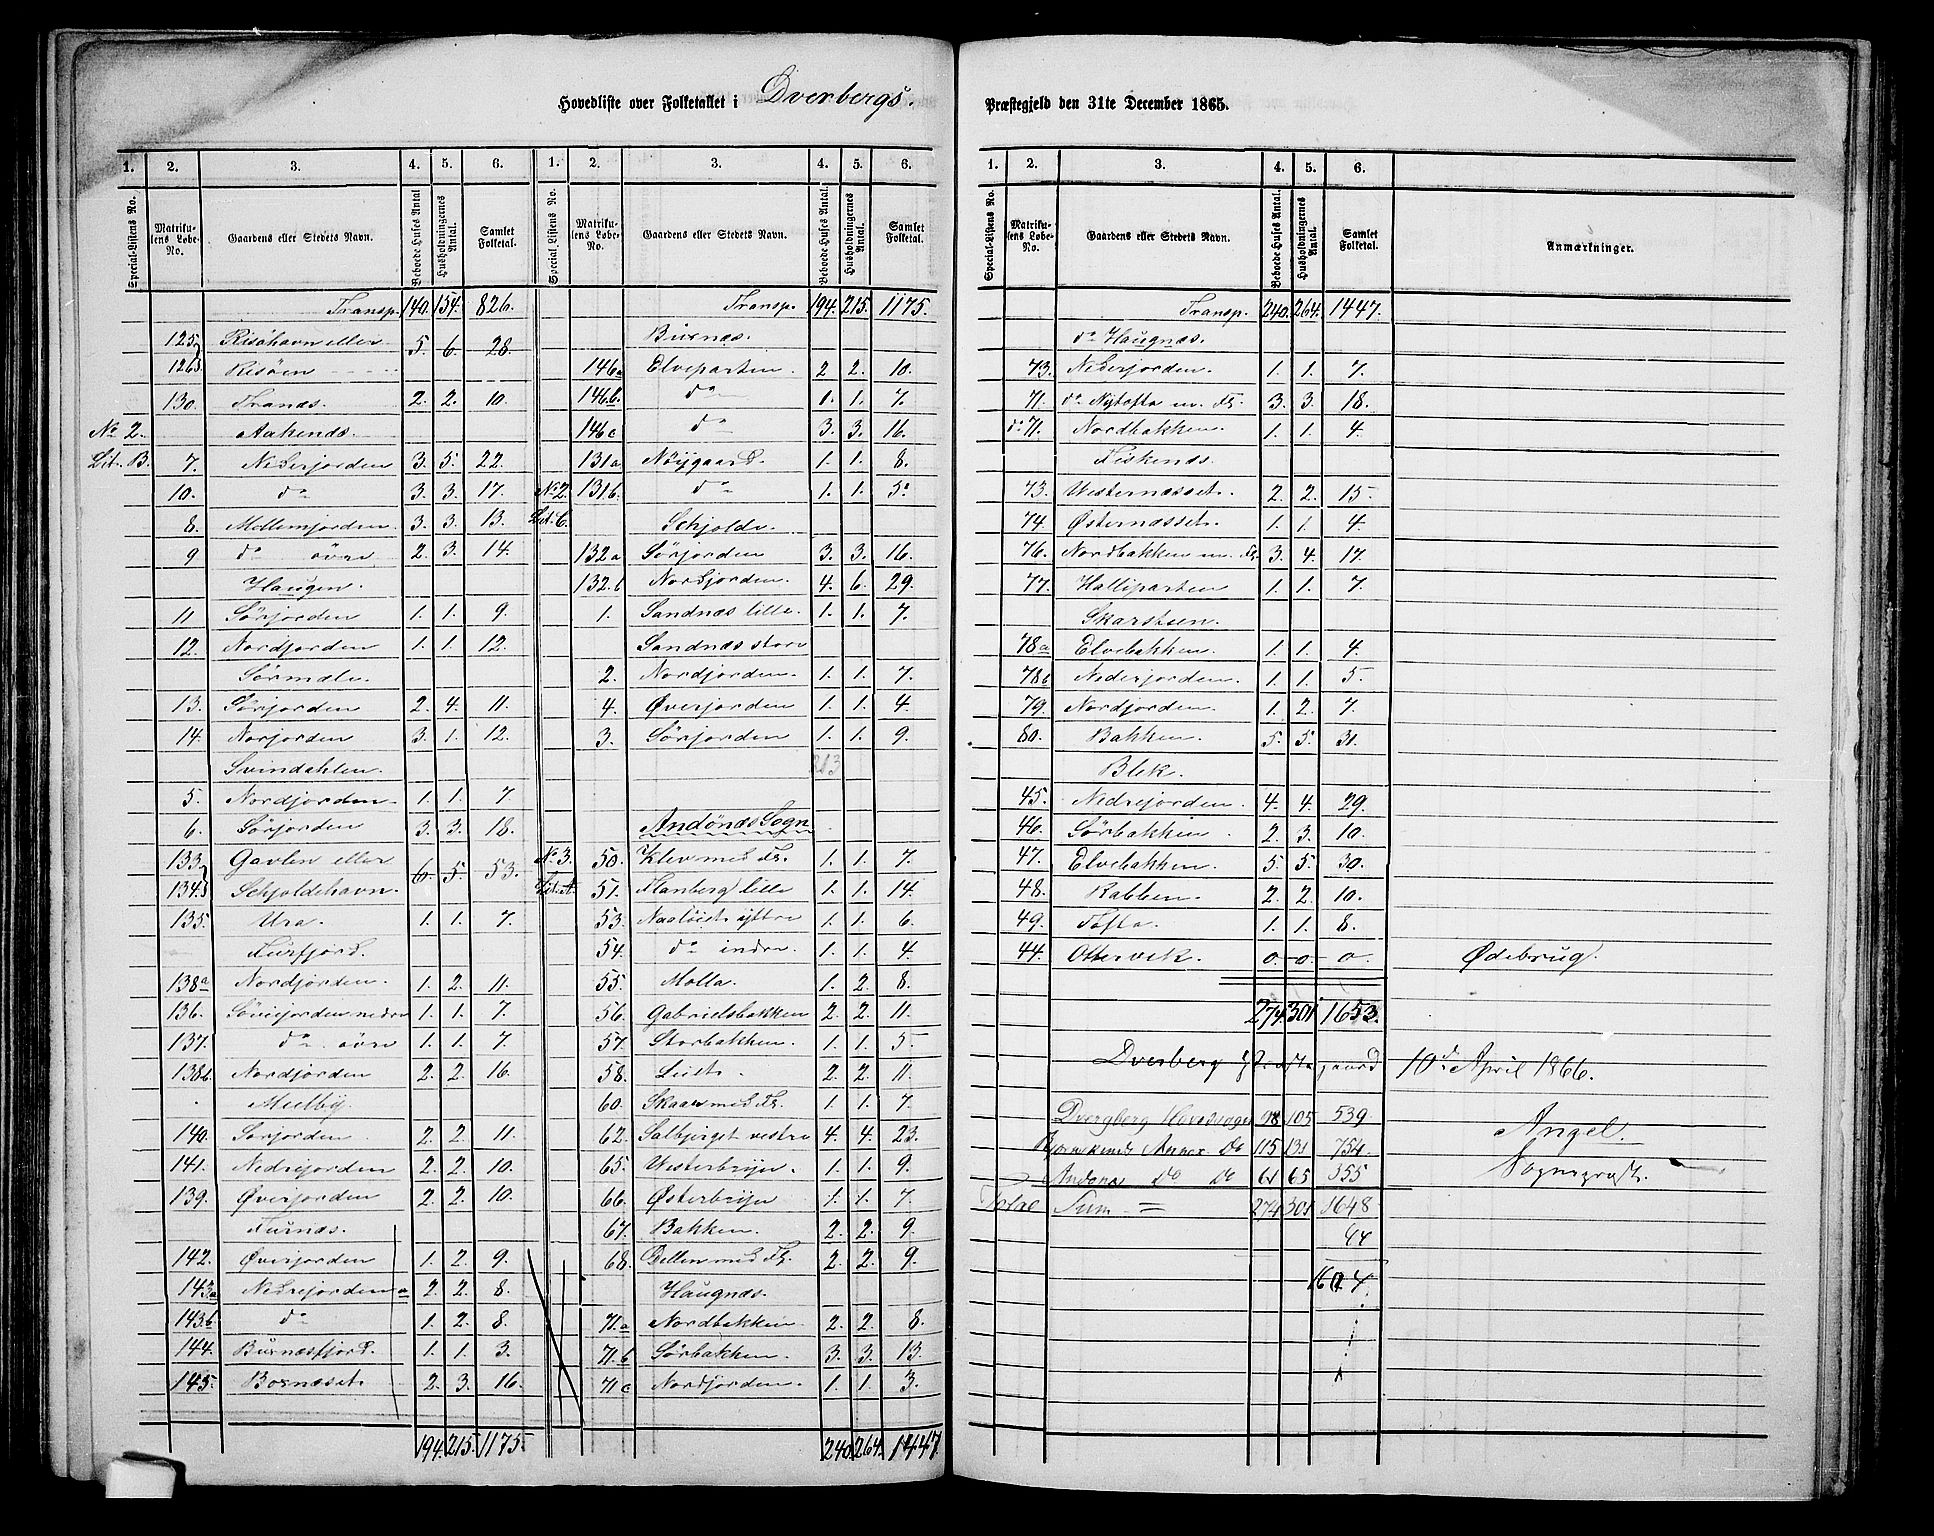 Hovedliste over Folketallet i Dverbergs Præstegjeld den 31te December 1865.
1. 2. 3. 4. 5. 6. 1. 2. 3. 4. 5. 6.
Special-Listens No. Matrikulens Løbe-No. Gaardens eller Stedets Navn. Beboede Huses Antal Husholdningernes Antal. Samlet Folketal. Special-Listens No. Matrikulens Løbe-No. Gaardens eller Stedets Navn. Beboede Huses Antal. Husholdningernes Antal. Samlet Folketal.
Transp. 140. 154. 826.
125 Risöhavn eller 5. 6. 28.
126 Risöen
130. Tranæs. 2. 2. 10.
No 2. Aakenæs.
Lit. B. 7. Nederjorden 3. 5. 22.
10. do 3. 3. 17.
8. Mellemjorden 3. 3. 13.
9 do övre 2. 3. 14.
Haugen.
11 Sörjorden 1. 1. 9.
12. Nordjorden 1. 1. 12.
Sörmæle.
13. Sörjorden 2. 4. 11.
14. Norjorden 3. 1. 12.
Svindahlen.
5. Nordjorden 1. 1. 7.
6. Sörjorden 3. 3. 18.
133 Gavlen eller 6. 5. 53.
134 Schjoldehavn.
135. Ura. 1. 1. 7.
Kurfjord.
138a Nordjorden. 1. 2. 11.
136. Sörejorden nedre 1. 1. 7.
137. do övre 1. 1. 7.
138b. Nordjorden 2. 2. 16.
Meelby
140. Sørjorden 2. 2. 11.
141. Nedrejorden 2. 2. 10.
139. Øverjorden 2. 2. 10.
142. Øverjorden 1. 2. 9.
143a Nedrejorden a 2. 2. 8.
143b do 1. 2. 8.
144. Buknæsfjord. 1. 1. 3.
145. 2. 3. 16.
194. 215. 1175.
Transp. 194. 215. 1175.
146a Elveparten 2 2. 10.
146b. do 1. 1. 7.
146c do 3. 3. 16.
131a Nøygaard. 1. 1. 8.
No 2. 131b. do 1. 1. 5.
Lit. C. Schjolde.
132a Sörjorden 3. 3. 16.
132b Nordjorden. 4. 6. 29.
1. Sandnæs lille. 1. 1. 7.
Sandnæs store
2. Nordjorden. 1. 1. 7.
4. Øverjorden 1. 1. 4.
3. Sörjorden 1. 1. 9.
213
Andönæs Sogn
No 3. 50. Klev med Fr. 1. 1. 7.
Lit. A. 51. lille 1. 1. 14.
53. yttre 1. 1. 6.
54. do indre. 1. 1. 4.
55. Molla. 1. 2. 8.
56. Gabrielsbakken 2. 2. 11.
57. Storbakken. 1. 1. 5.
58. 2. 2. 11.
60. Skaar med Fr. 1. 1. 7.
62. Salbjerget vestre 4. 4. 23.
65. Westerbryn. 1. 1. 9.
66. Østerbryn 1. 1. 7.
67. Bakken. 2. 2. 9.
68. med Fr. 2. 2. 9.
Haugnæs.
71a Nordbakken. 2. 2. 8.
71b Sörbakken. 3. 3. 13.
71c Nordjorden. 1. 1. 3.
240. 264. 1447
1. 2. 3. 4. 5. 6.
Special-Listens No. Matrikulens Løbe-No. Gaardens eller Stedets Navn. Beboede Huses Antal. Husholdningernes Antal. Samlet Folketal. Anmærkninger.
Transp. 240. 264. 1447.
do Haugnæs.
73. Nederjorden. 1. 1. 7.
71. do Nytofta m. Fr. 3. 3. 18.
do 71. Nordbakken. 1. 1. 4.
Fiskenæs.
73. Westernæsset. 2. 2. 15.
74. Østernæsset. 1. 1. 4.
76. Nordbakken m. Fr. 3. 4. 17.
77. Halliparten 1. 1. 7.
Skarsteen.
78a Elvebakken. 1. 1. 4.
78b Nederjorden. 1. 1. 5.
79. Nordjorden. 1. 2. 7.
80. Bakken. 5. 5. 31.
Blek.
45. Nedrejorden. 4. 4. 29.
46. Sörbakken 2. 3. 10.
47. Elvebakken. 5. 5. 30.
48. Rabben. 2. 2. 10.
49. Tofta. 1. 1. 8.
44. Ottervik. 0. 0. 0. Ødebrug.
274. 301 1653.
Dverberg Præstegaard 10de April 1866.
Dvergberg Hovedsogn 98 105 539.
Annex Do 115 131 754.
Andenæs Do Do 61 65 355 Angel.
Total Sum = 274 301 1648 Sogneprest.
44
1604.